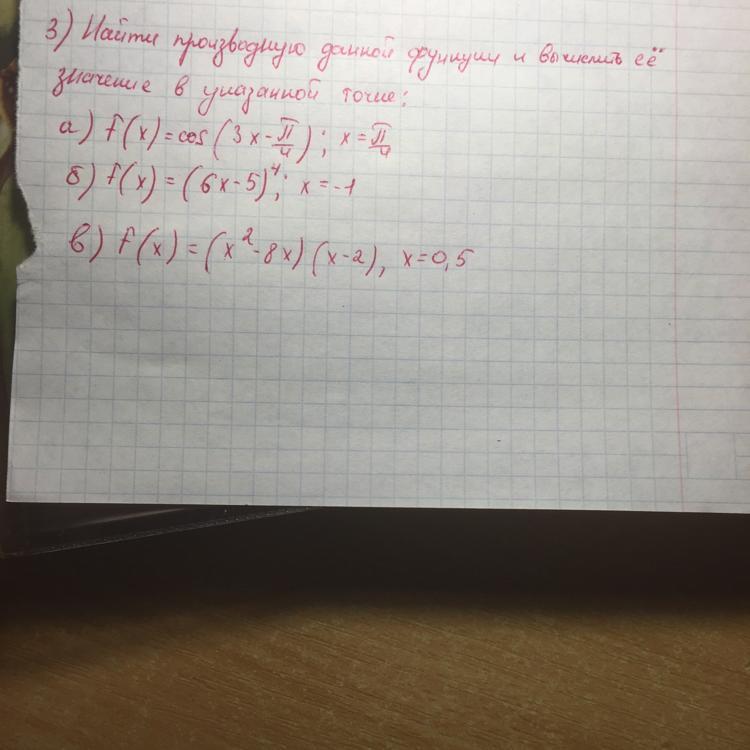 3) Найти производную данной функции и вычислить её
значение в указанной точке:
а) f(x) = cos(3x - π/4); x = π/4
б) f(x) = (6x - 5)⁴; x = -1
в) f(x) = (x² - 8x)(x - 2), x = 0,5